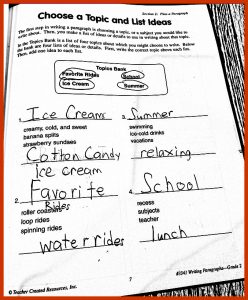 Section 1: Plan a Paragraph
Choose a Topic and List Ideas
The first step in writing a paragraph is choosing a topic, or a subject you would like to
write about. Then, you make a list of ideas or details to use in writing about this topic.
In the Topics Bank is a list of four topics about which you might choose to write. Below
the bank are four lists of ideas or details. First, write the correct topic above each list.
Then, add one idea to each list.
Topics Bank
Favorite Rides School
Ice Cream Summer
1. Ice Cream
creamy, cold, and sweet
banana splits
strawberry sundaes
Cotton Candy
Ice cream
2. Favorite
Rides
roller coasters
loop rides
spinning rides
water rides
3. Summer
swimming
ice-cold drinks
vacations
relaxing
4. School
recess
subjects
teacher
lunch
© Teacher Created Resources, Inc.
7
Writing Paragraphs—Grade